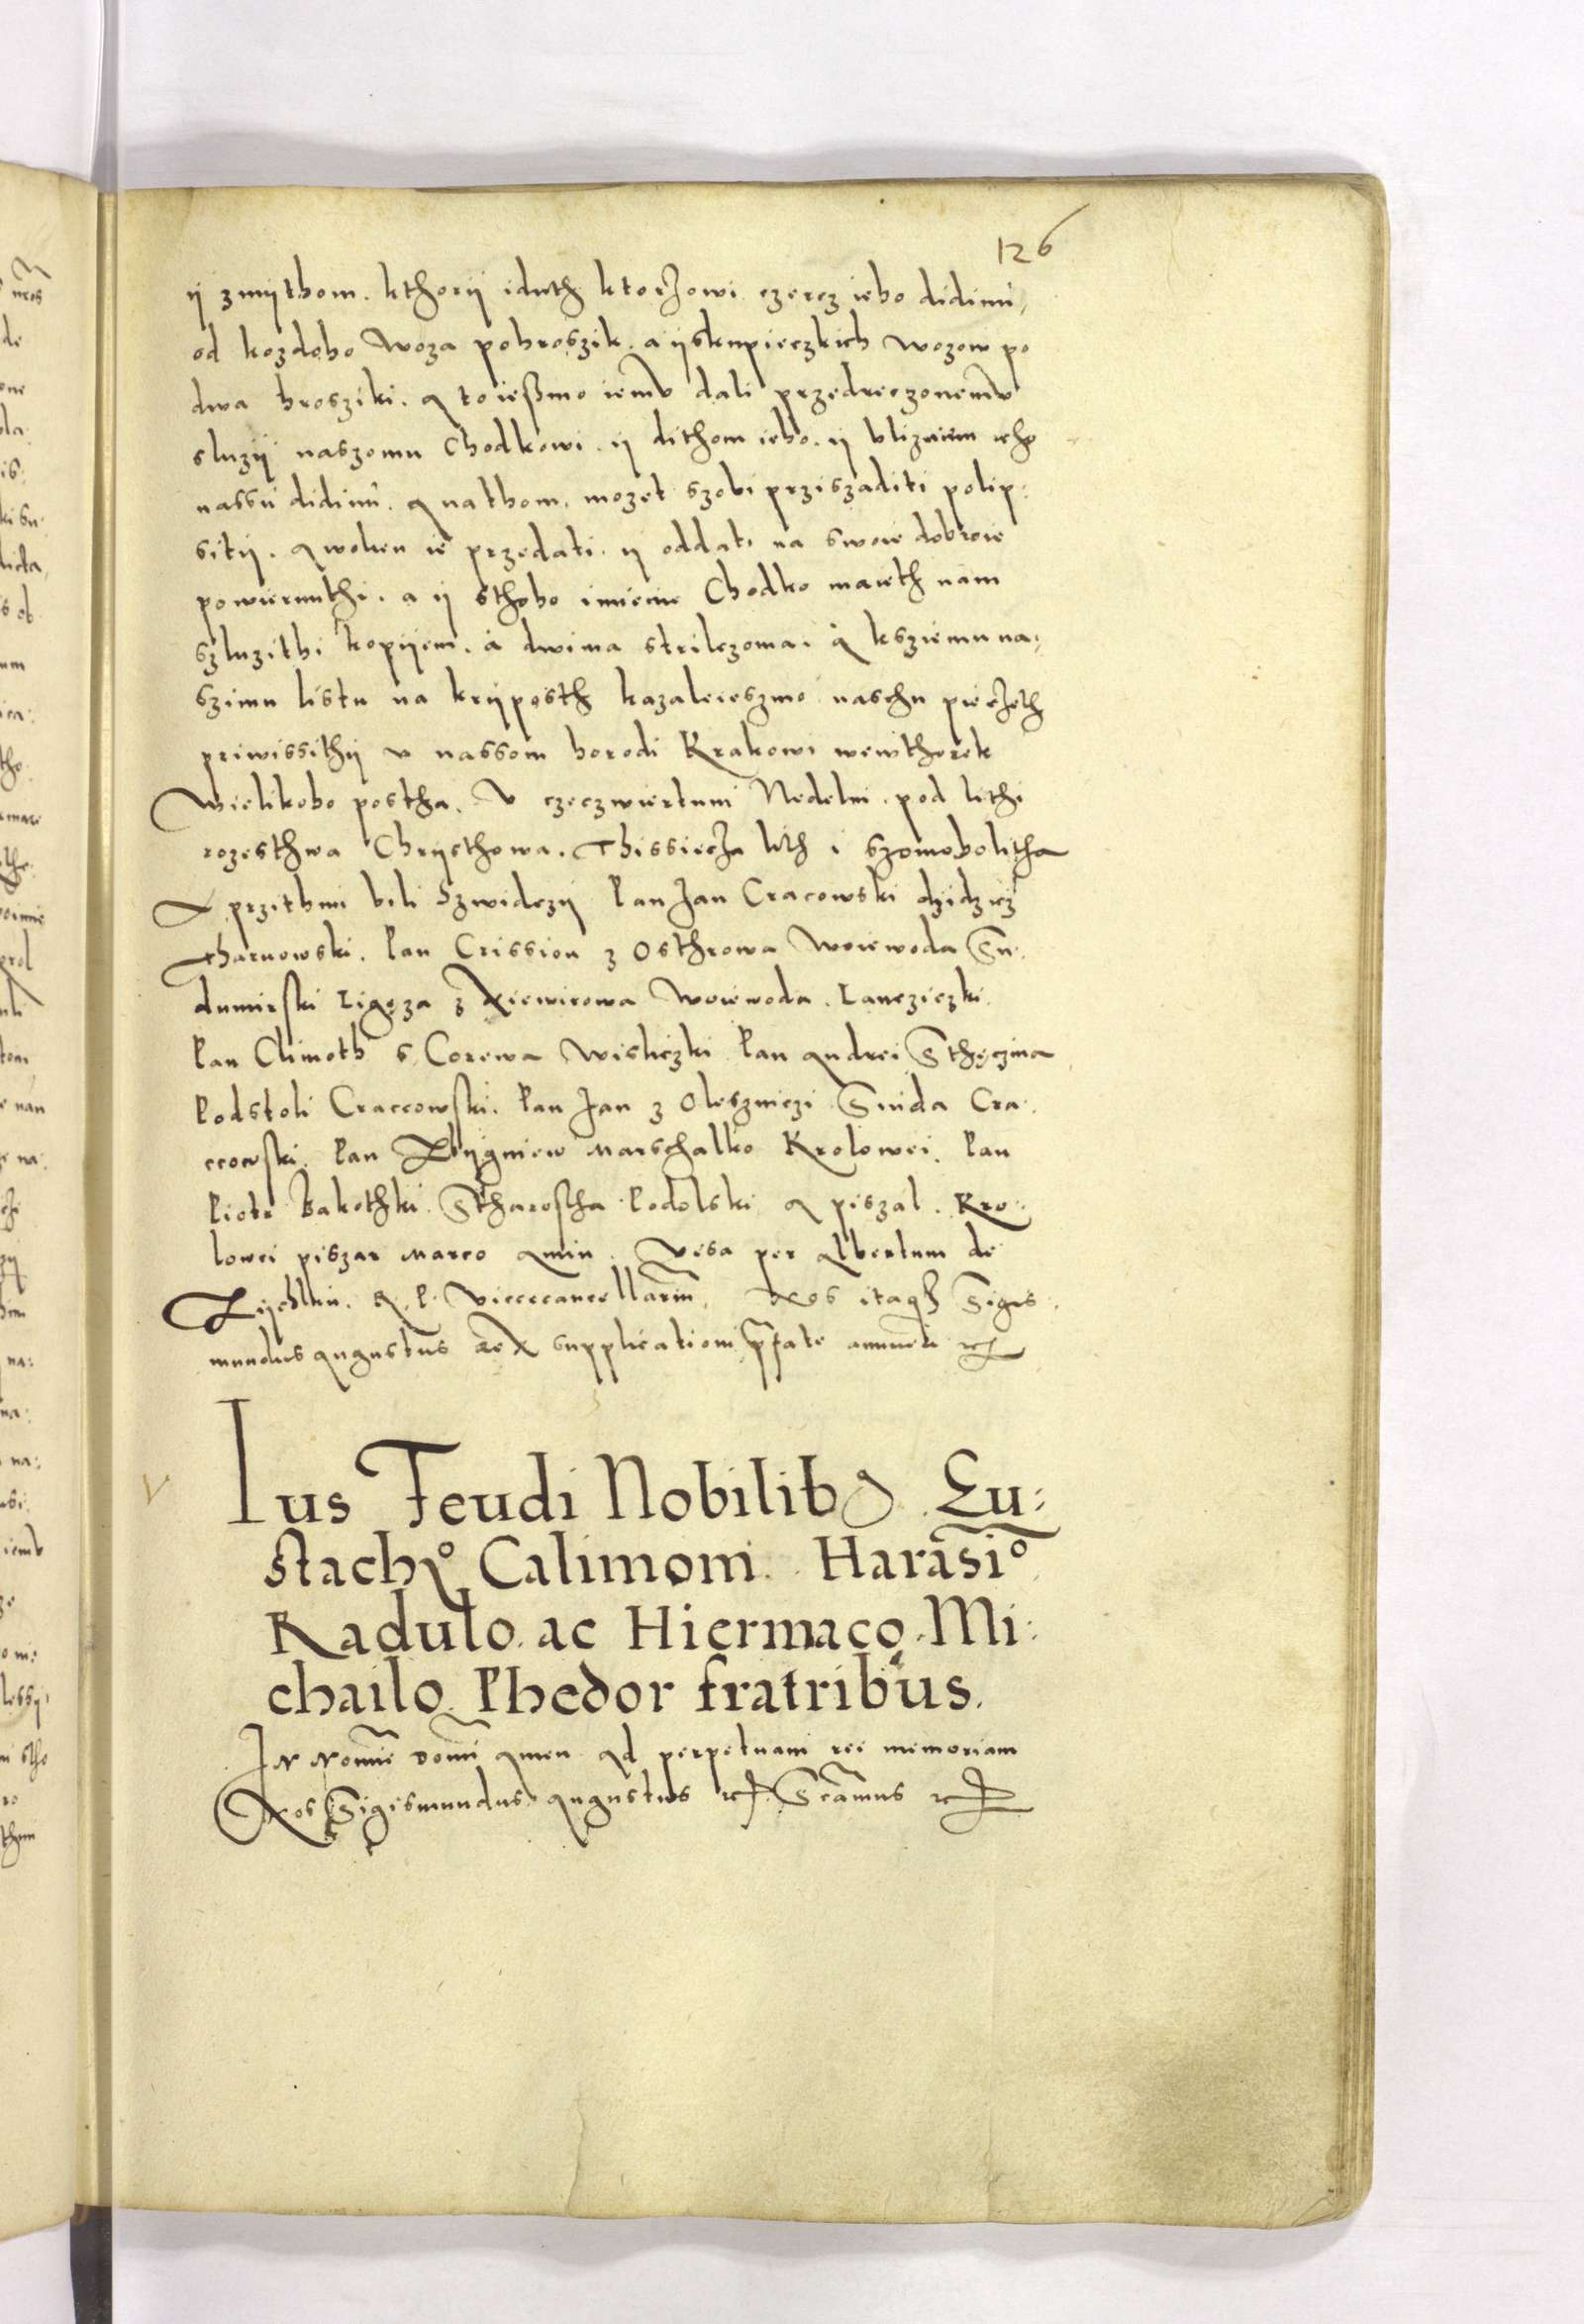 126
ij z mijthom. kthorij iduth ktorzowi czercz ieho didinu,
od kozdoho woza po hroszik. a ijskupieczkich wozow po
dwa hrosziki. A to ießmo iemv dali przedreczonemv
sluzij naszomu Chodkowi. ij dithom ieho. ij bliznim ieho
nassu didinu. A na thom. mozet szobi przisaditi polip:
sitij. A wolen ie przedati. ij oddati na swoie dobroie
powiernuthi. a ij sthoho imienie Chodko maieth nam
szluzithi kopijem. a dwima strilczoma. A ksziemu na:
szimu listu na krijposth kazalieieszmo naschu pieczeth
priwissithij v nassom horodi Krakowi wewthorek
Wielikoho postha. V czeczwiertuni Nedelni. pod lithi
rozesthwa Chrijsthowa. Thissiecza lith i szomoholitha
A przithmi bili Szwidczij Pan Jan Cracowski dzidzicz
Tharnowski. Pan Crission z Osthrowa Woiewoda Sen:
dumirski Ligęza z Xiewicowa Woiewoda. Lanczieczki.
Pan Climoth s Corewa Wisliczki Pan Andrei S Thęczina
Podstoli Craccowski. Pan Jan z Oleszniczi Suida Cra:
ccowski. Pan Zbijgniew Marschalko Krolowei. Pan
Piotr Bakothki. Stharostha Podolski A piszal. Kro:
lowei piszar Marco Amin. Visa per Albertum de
Zijchlin. R. P. Vicecancellariu. Nos itaq Sigis:
mundus Augustus Rex supplicationi pfate annuen etc

V
Ius Feudi Nobilib9 Eu:
stachyo Calimoni. Harasio
Radulo. ac Hiermaco. Mi:
chailo. Phedor fratribus.
In Nomie Domi Amen Ad perpetuam rei memoriam
Nos Sigismundus Augustus etc. Scamus etc